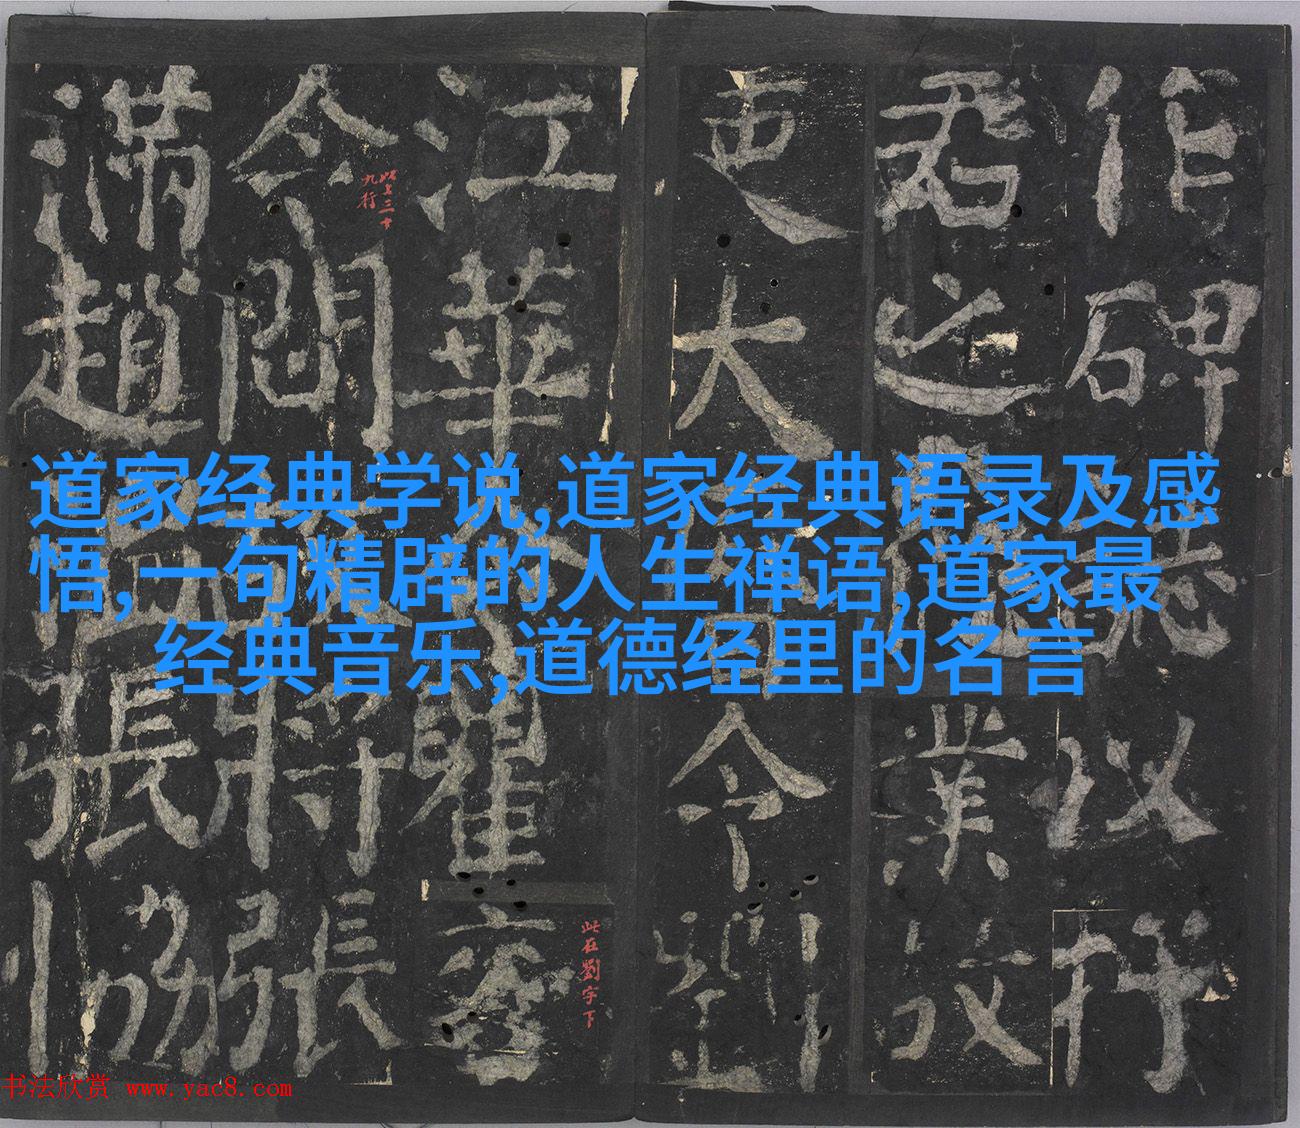 道家经典学说,道家经典语录及感
悟,一句精辟的人生禅语,道家最
经典音乐,道德经里的名言
作碑以行
君之業故
吏大令
江華瞿
令閻將張
滿趙張協
此上三十九行
此在劉字下
书法欣赏 www.yac8.com